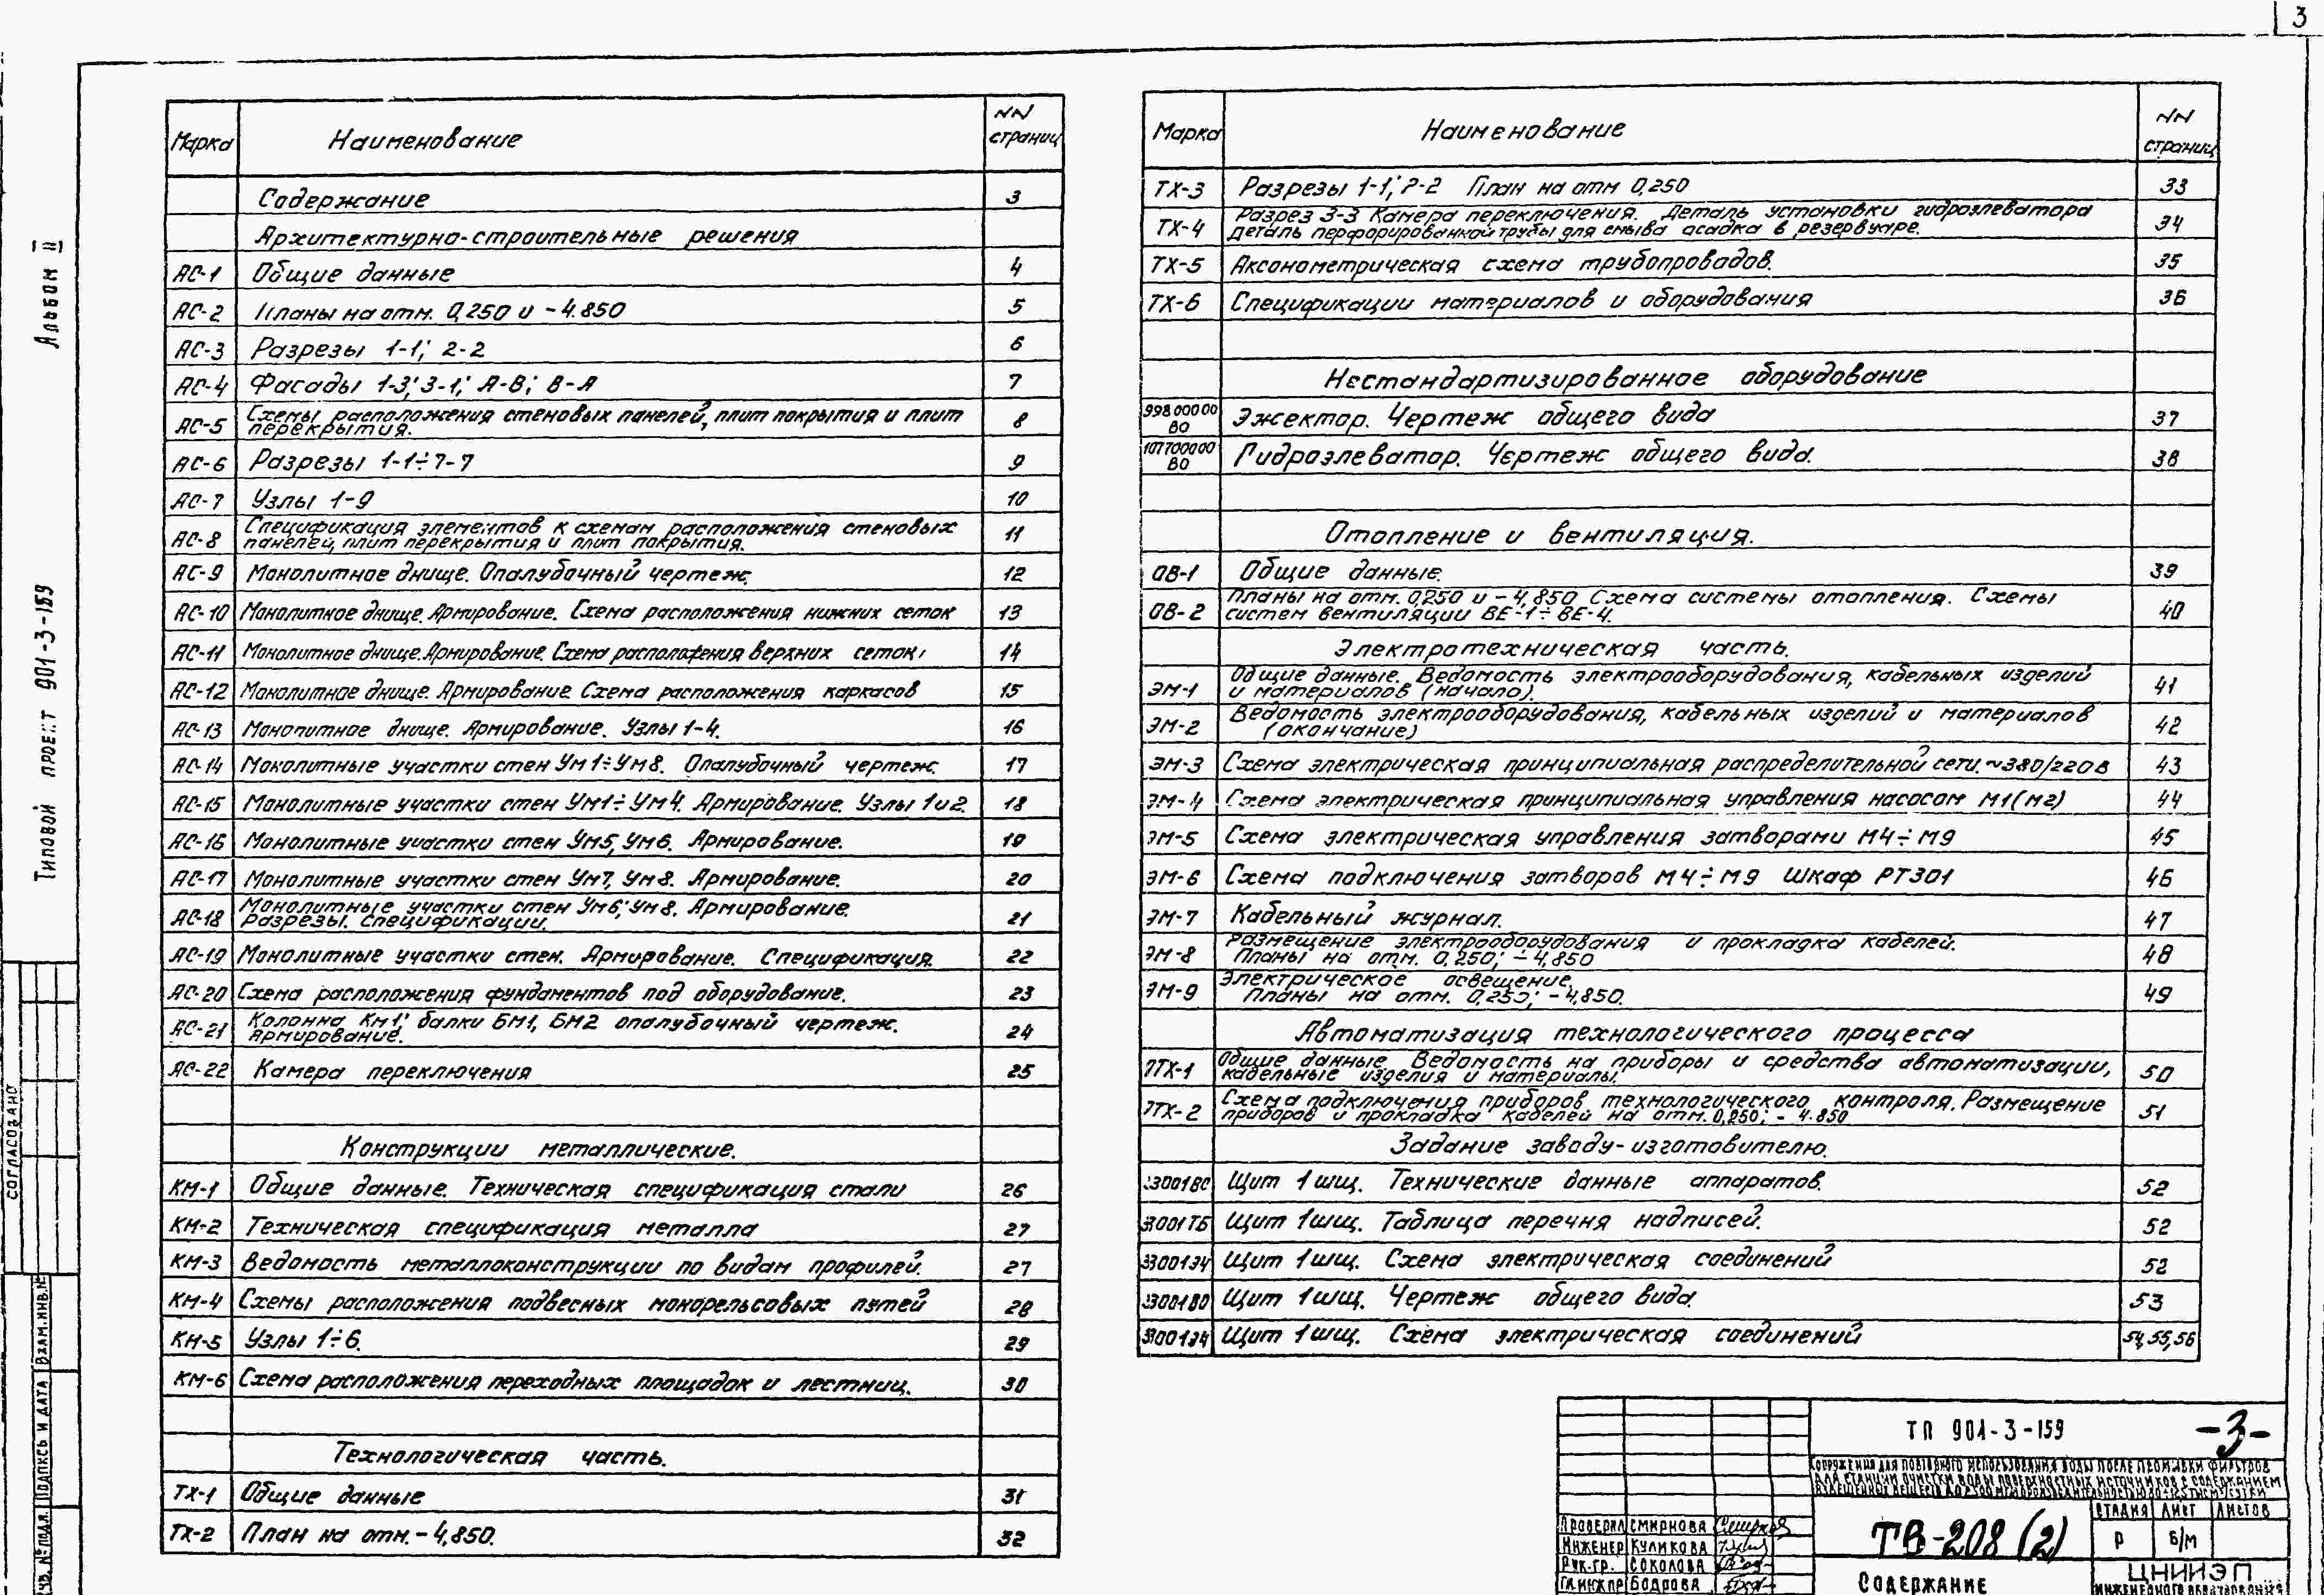 3
Альбом II
Типовой проект 901-3-159
Согласовано
Взам.инв.№
Подпись и дата
№ подл.
Марка Наименование NN страниц
Содержание 3
Архитектурно-строительные решения
АС-1 Общие данные 4
АС-2 Планы на отм. 0,250 и -4.850 5
АС-3 Разрезы 1-1; 2-2 6
АС-4 Фасады 1-3; 3-1; А-В; В-А 7
АС-5 Схемы расположения стеновых панелей, плит покрытия и плит
перекрытия. 8
АС-6 Разрезы 1-1÷7-7 9
АС-7 Узлы 1-9 10
АС-8 Спецификация элементов к схемам расположения стеновых
панелей, плит перекрытия и плит покрытия. 11
АС-9 Монолитное днище. Опалубочный чертеж. 12
АС-10 Монолитное днище. Армирование. Схема расположения нижних сеток 13
АС-11 Монолитное днище. Армирование. Схема расположения верхних сеток 14
АС-12 Монолитное днище. Армирование. Схема расположения каркасов 15
АС-13 Монолитное днище. Армирование. Узлы 1-4. 16
АС-14 Монолитные участки стен Ум1÷Ум8. Опалубочный чертеж. 17
АС-15 Монолитные участки стен Ум1÷Ум4. Армирование. Узлы 1и2. 18
АС-16 Монолитные участки стен Ум5, Ум6. Армирование. 19
АС-17 Монолитные участки стен Ум7, Ум8. Армирование. 20
АС-18 Монолитные участки стен Ум6; Ум8. Армирование.
Разрезы. Спецификации. 21
АС-19 Монолитные участки стен. Армирование. Спецификация. 22
АС-20 Схема расположения фундаментов под оборудование. 23
АС-21 Колонна Км1; балки БМ1, БМ2 опалубочный чертеж.
Армирование. 24
АС-22 Камера переключения 25
Конструкции металлические.
КМ-1 Общие данные. Техническая спецификация стали 26
КМ-2 Техническая спецификация металла 27
КМ-3 Ведомость металлоконструкции по видам профилей. 27
КМ-4 Схемы расположения подвесных монорельсовых путей 28
КМ-5 Узлы 1÷6. 29
КМ-6 Схема расположения переходных площадок и лестниц. 30
Технологическая часть.
ТХ-1 Общие данные 31
ТХ-2 План на отм. -4,850. 32
Марка Наименование NN страниц
ТХ-3 Разрезы 1-1; 2-2 План на отм 0,250 33
ТХ-4 Разрез 3-3 Камера переключения. Деталь установки гидроэлеватора
деталь перфорированной трубы для смыва осадка в резервуаре. 34
ТХ-5 Аксонометрическая схема трубопроводов. 35
ТХ-6 Спецификации материалов и оборудования 36
Нестандартизированное оборудование
99800000 ВО Эжектор. Чертеж общего вида 37
107700000 ВО Гидроэлеватор. Чертеж общего вида. 38
Отопление и вентиляция.
ОВ-1 Общие данные. 39
ОВ-2 Планы на отм. 0,250 и -4,850 Схема системы отопления. Схемы
систем вентиляции ВЕ-1÷ВЕ-4. 40
Электротехническая часть.
ЭМ-1 Общие данные. Ведомость электрооборудования, кабельных изделий
и материалов (начало). 41
ЭМ-2 Ведомость электрооборудования, кабельных изделий и материалов
(окончание) 42
ЭМ-3 Схема электрическая принципиальная распределительной сети. ~380/220В 43
ЭМ-4 Схема электрическая принципиальная управления насосом М1(М2) 44
ЭМ-5 Схема электрическая управления затворами М4÷М9 45
ЭМ-6 Схема подключения затворов М4÷М9 Шкаф РТ301 46
ЭМ-7 Кабельный журнал. 47
ЭМ-8 Размещение электрооборудования и прокладка кабелей.
Планы на отм. 0,250; -4,850 48
ЭМ-9 Электрическое освещение.
Планы на отм. 0,250; -4,850. 49
Автоматизация технологического процесса
АТХ-1 Общие данные. Ведомость на приборы и средства автоматизации,
кабельные изделия и материалы. 50
АТХ-2 Схема подключения приборов технологического контроля. Размещение
приборов и прокладка кабелей на отм. 0,250; -4.850 51
Задание заводу-изготовителю.
Щит 1шщ. Технические данные аппаратов. 52
Щит 1шщ. Таблица перечня надписей. 52
Щит 1шщ. Схема электрическая соединений 52
Щит 1шщ. Чертеж общего вида. 53
Щит 1шщ. Схема электрическая соединений 54,55,56
ТП 901-3-159 -3-
Сооружения для повторного использования воды после промывки фильтров
для станции очистки воды поверхностных источников с содержанием
Стадия Лист Листов
Р б/м
ТВ-208 (2)
Проверил Смирнова
Инженер Куликова
Рук.гр. Соколова
Гл.инж.пр Бодрова
Содержание
ЦНИИЭП
инженерного оборудования